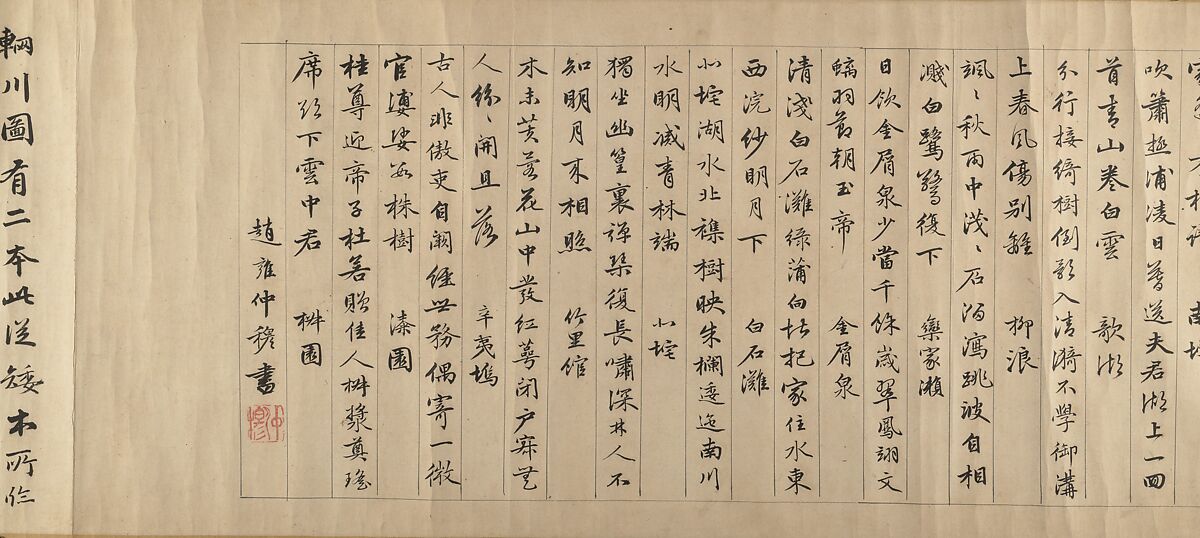 吹簫極浦凌日暮送夫君湖上一回
首青山卷白雲 欹湖
分行接綺樹倒影入清漪不學御溝
上春風傷別離 柳浪
颯〻秋雨中淺〻石溜瀉跳波自相
濺白鷺驚復下 欒家瀨
日飲金屑泉少當千餘歲翠鳳翊文
螭羽節朝玉帝 金屑泉
清淺白石灘綠蒲向堪把家住水東
西浣紗明月下 白石灘
北垞湖水北襍樹映朱欄逶迤南川
水明滅青林端 北垞
獨坐幽篁裏彈琴復長嘯深林人不
知明月來相照 竹里館
木末芙蓉花山中發紅萼閉户寂無
人紛〻開且落 辛夷塢
古人非傲吏自闕經世務偶寄一微
官婆娑數株樹 漆園
桂尊迎帝子杜若贈佳人椒漿奠瑤
席欲下雲中君 椒園
趙雍仲穆書
輞川圖有二本此從矮本所